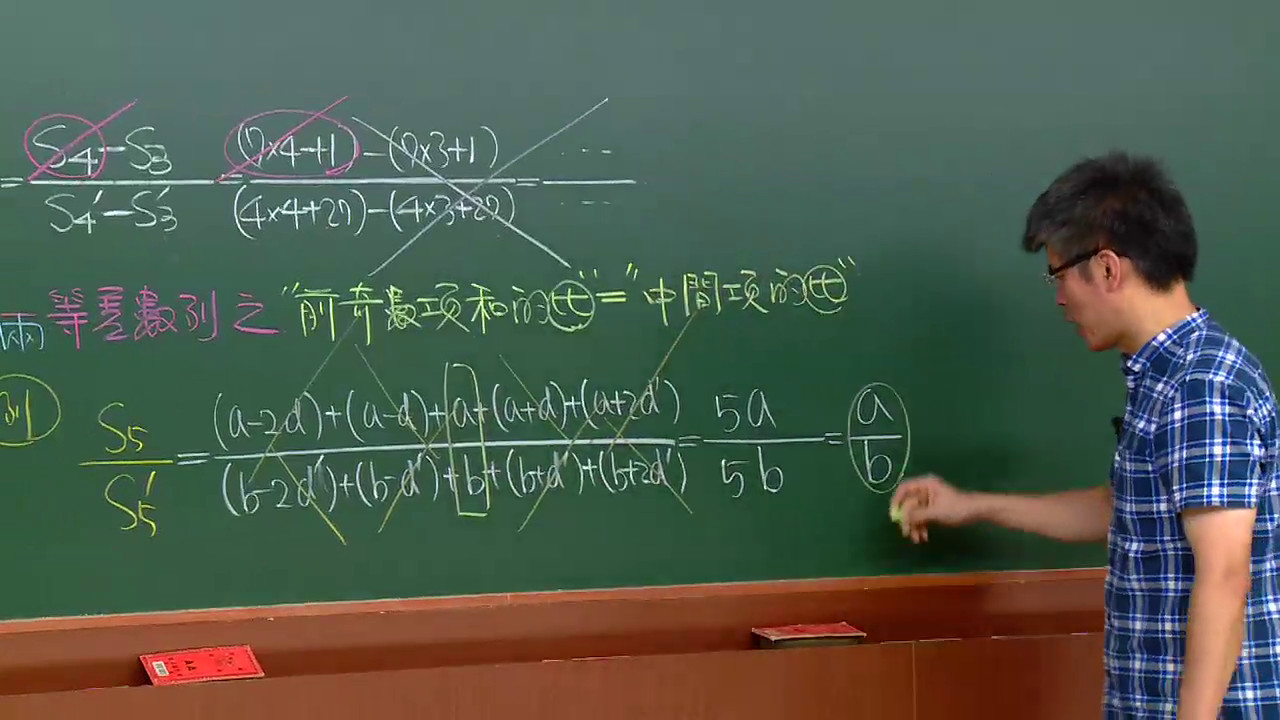 = (S₄-S₃)/(S₄′-S₃′) = ((7×4+1)-(7×3+1))/((4×4+27)-(4×3+27)) = ---/---
兩等差數列之"前奇數項和的比"="中間項的比"
例 S₅/S₅′ = ((a-2d)+(a-d)+a+(a+d)+(a+2d))/((b-2d′)+(b-d′)+b+(b+d′)+(b+2d′)) = 5a/5b = a/b